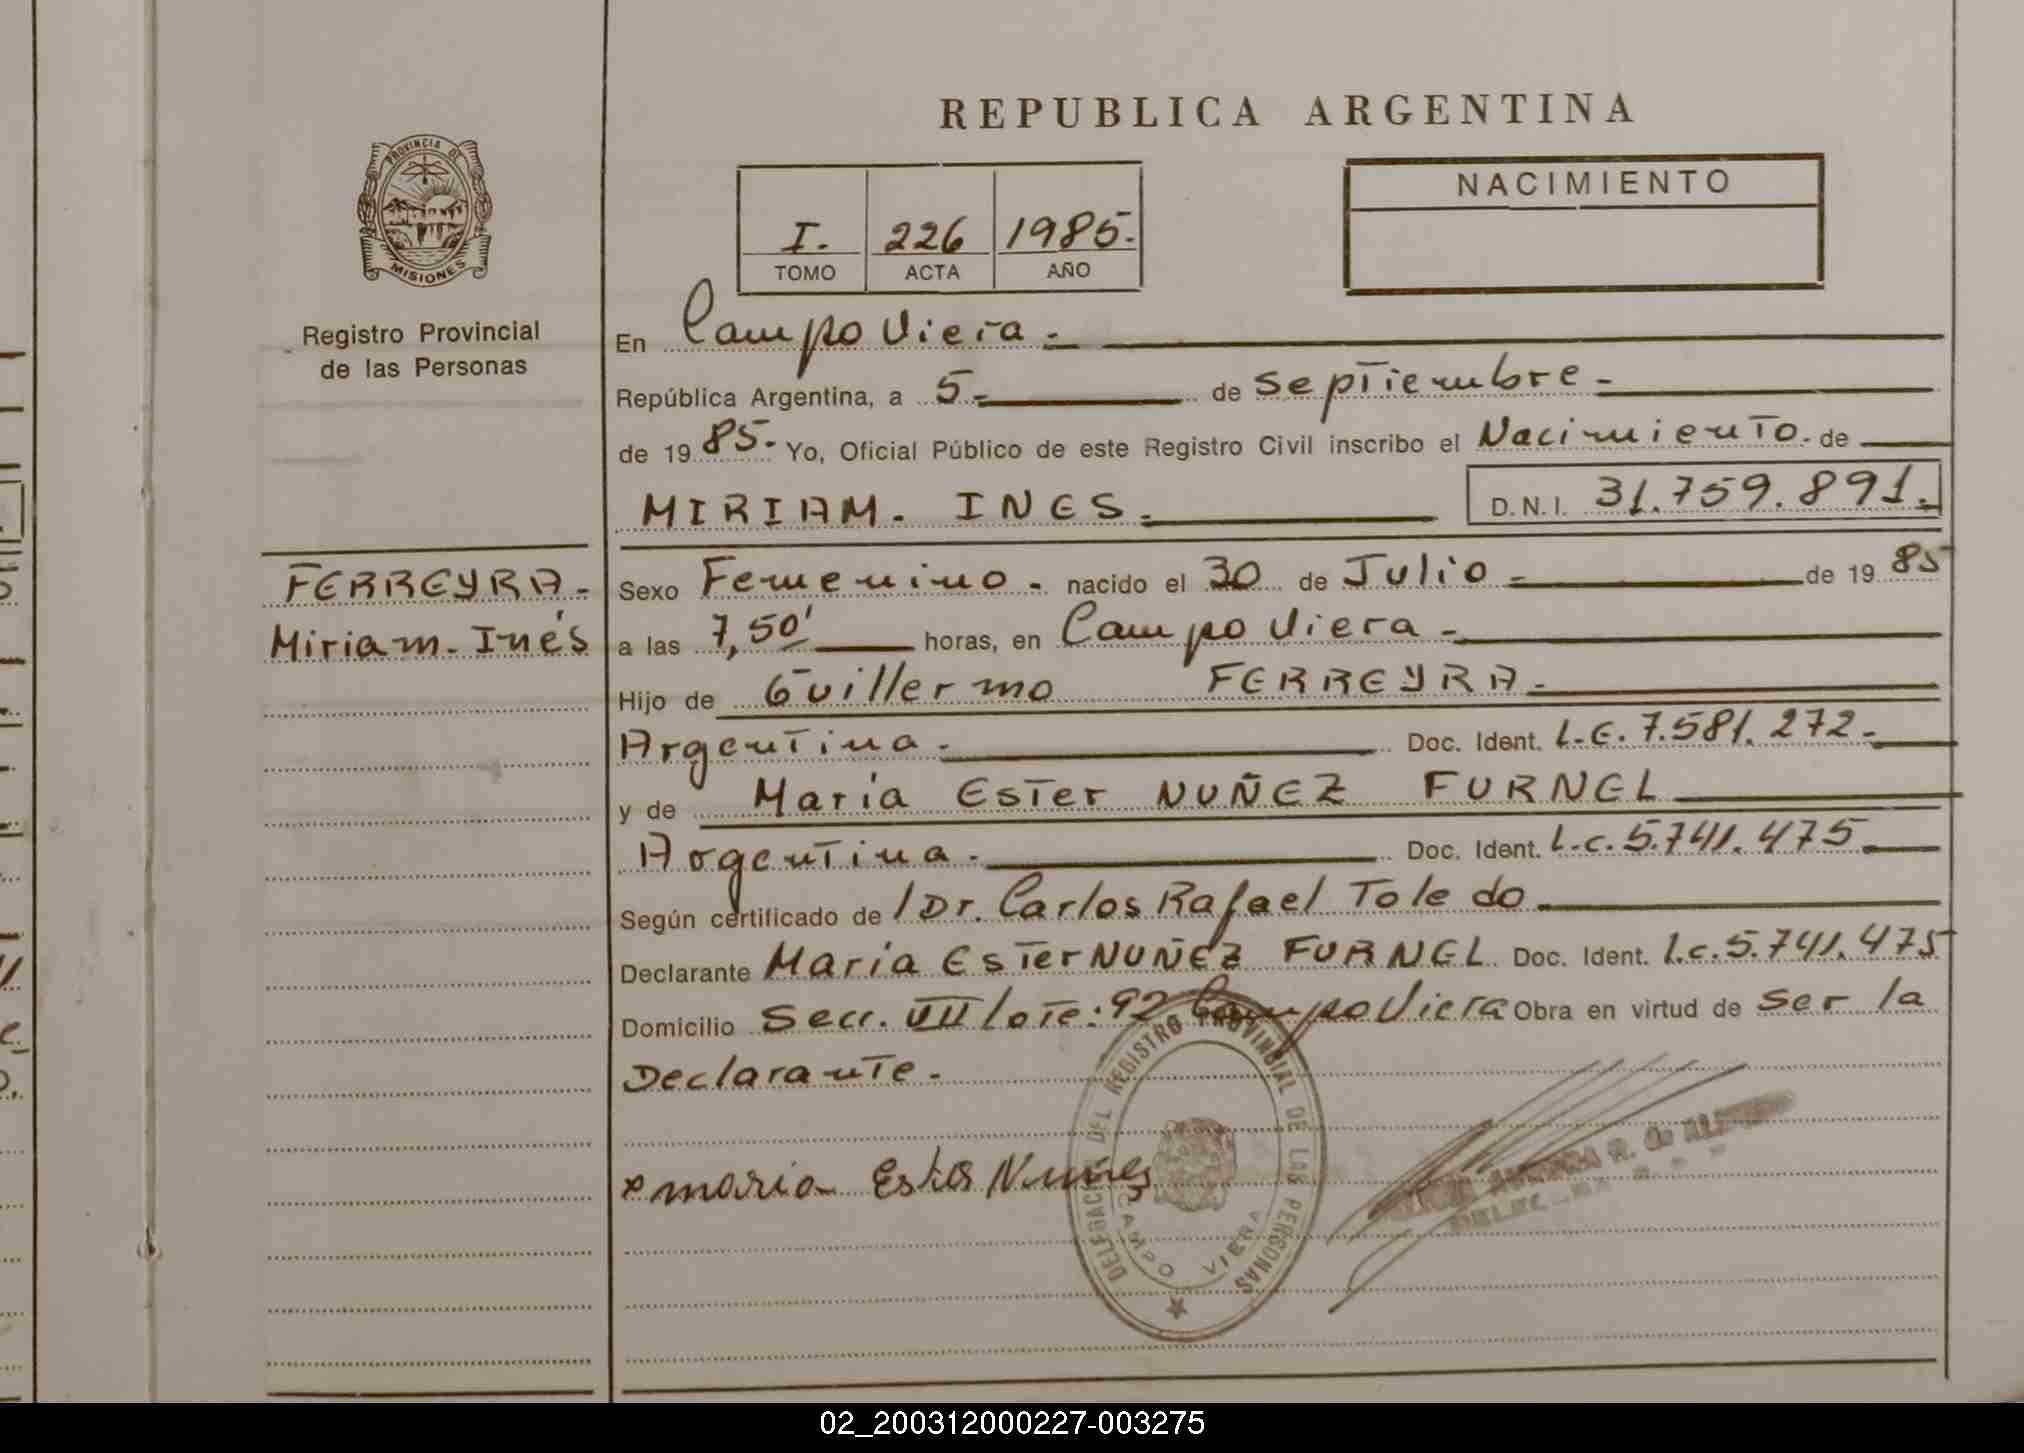 REPUBLICA ARGENTINA
PROVINCIA DE
MISIONES
Registro Provincial
de las Personas
I. 226 1985.
TOMO ACTA AÑO
NACIMIENTO
En Campo Viera.-
República Argentina, a 5.- de Septiembre.-
de 1985.- Yo, Oficial Público de este Registro Civil inscribo el Nacimiento. de
MIRIAM. INES.- D.N.I. 31.759.891.-
FERREYRA.-
Miriam. Inés
Sexo Femenino.- nacido el 30 de Julio.- de 1985
a las 7,50' horas, en Campo Viera.-
Hijo de Guillermo FERREYRA.-
Argentina.- Doc. Ident. L.E. 7.581.272.-
y de María Ester NUÑEZ FURNEL
Argentina.- Doc. Ident. L.C. 5.741.475.-
Según certificado de /Dr. Carlos Rafael Toledo
Declarante María Ester NUÑEZ FURNEL Doc. Ident. L.C. 5.741.475
Domicilio Secc. VII lote: 92 Campo Viera Obra en virtud de ser la
Declarante.-
x maria Ester Nuñes
DELEGACION DEL REGISTRO PROVINCIAL DE LAS PERSONAS
CAMPO VIERA
R. de
02_200312000227-003275